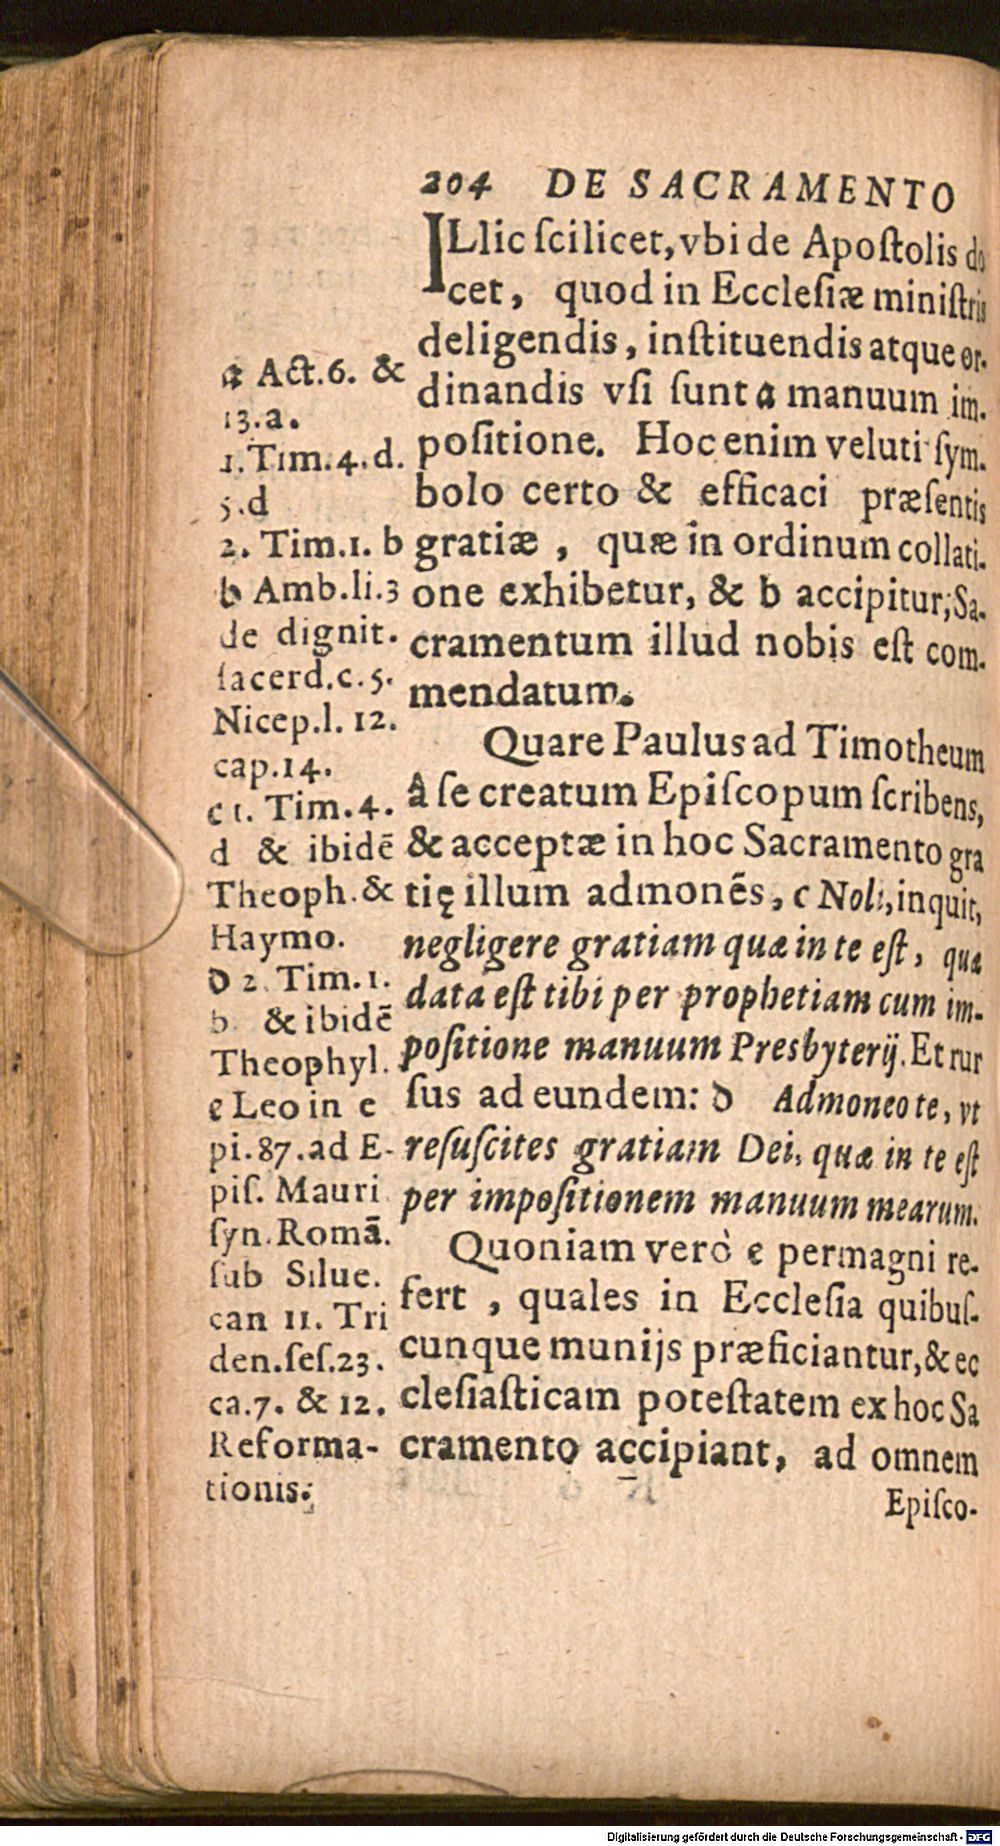 204 DE SACRAMENTO
ILlic ſcilicet, vbi de Apoſtolis do
cet, quod in Ecclesiæ miniſtris
deligendis, inſtituendis atque or-
dinandis vſi ſunt a manuum im-
poſitione. Hoc enim veluti ſym-
bolo certo & efficaci præſentis
gratiæ, quæ in ordinum collati-
one exhibetur, & b accipitur, Sa-
cramentum illud nobis eſt com-
mendatum.
Quare Paulus ad Timotheum
â ſe creatum Epiſcopum ſcribens,
& acceptæ in hoc Sacramento gra
tię illum admonẽs, c Noli, inquit,
negligere gratiam quæ in te eſt, quæ
data eſt tibi per prophetiam cum im-
poſitione manuum Presbyterij. Et rur
ſus ad eundem: d Admoneo te, vt
reſuſcites gratiam Dei, quæ in te eſt
per impoſitionem manuum mearum.
Quoniam verò e permagni re-
fert, quales in Eccleſia quibuſ-
cunque munijs præficiantur, & ec
cleſiaſticam poteſtatem ex hoc Sa
cramento accipiant, ad omnem
Epiſco-
a Act. 6. &
13.a.
1. Tim. 4. d.
5.d
2. Tim. 1. b
b Amb. li. 3
de dignit.
ſacerd. c. 5.
Nicep. l. 12.
cap. 14.
c 1. Tim. 4.
d & ibidẽ
Theoph. &
Haymo.
d 2. Tim. 1.
b & ibidẽ
Theophyl.
e Leo in e
pi. 87. ad E-
piſ. Mauri
ſyn. Romã.
ſub Silue.
can 11. Tri
den. ſeſ. 23.
ca. 7. & 12.
Reforma-
tionis.
Digitalisierung gefördert durch die Deutsche Forschungsgemeinschaft - DFG